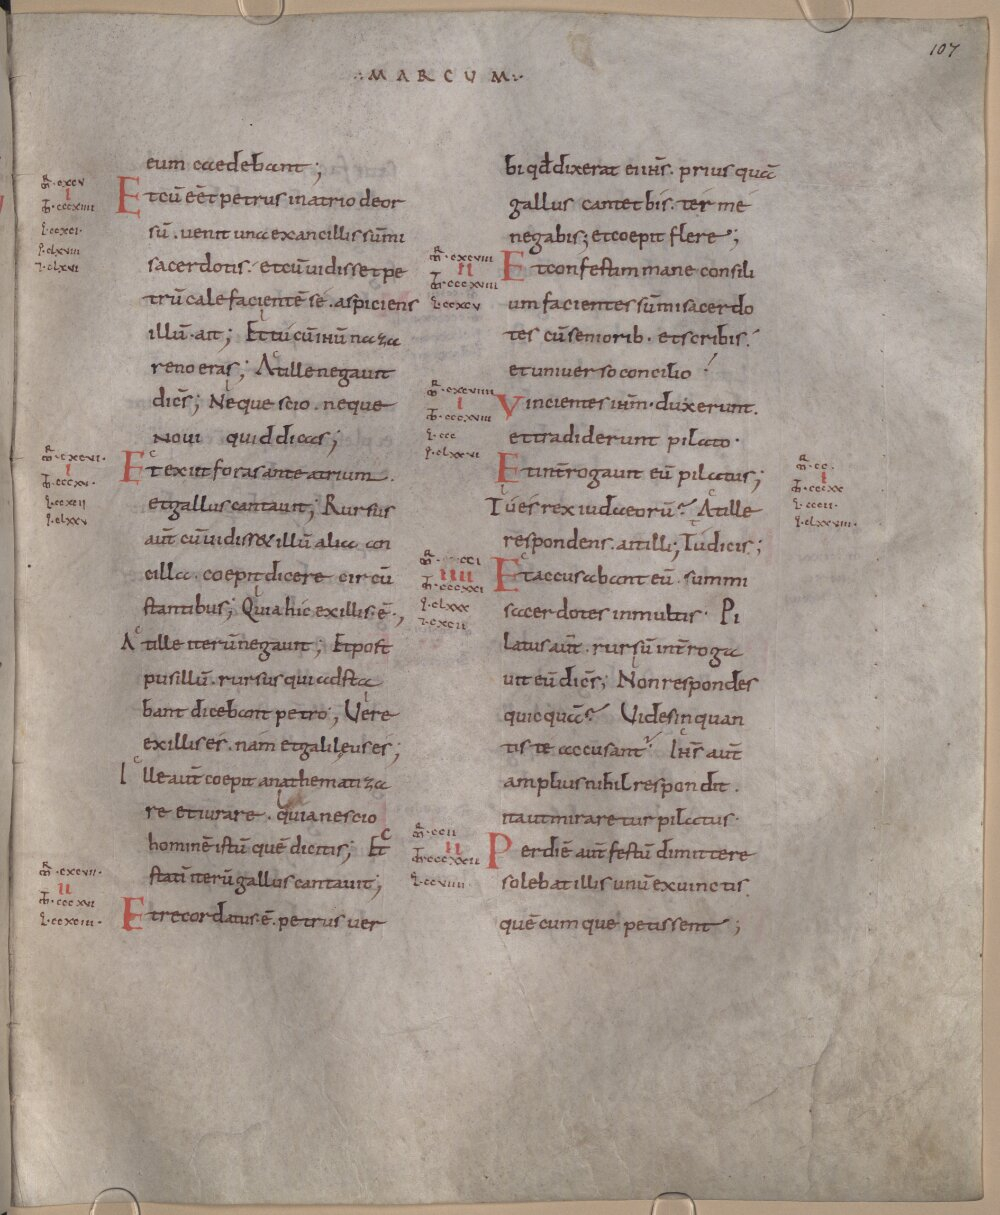 107
·:MARCUM:·
eum caedebant;
Et cū eēt petrus in atrio deor
sū. uenit una ex ancillis sūmi
sacerdotis. et cū uidisset pe
trū calefacientē se. aspiciens
illū. ait; Et tu cū ihū naza
reno eras; At ille negauit
dicēs; Neque scio. neque
noui quid dicas;
Et exiit foras ante atrium.
et gallus cantauit; Rursus
aūt cū uidisset illū alia an
cilla. coepit dicere circū
stantibus; Quia hic ex illis. ē.;
At ille iterū negauit; Et post
pusillū. rursus qui adsta
bant dicebant petro; Uere
ex illis es. nam et galileus es;
Ille aūt coepit anathematiza
re et iurare. quia nescio
hominē istū quē dicitis; Et
statī iterū gallus cantauit;
Et recordatus. ē. petrus uer
bi qđ dixerat ei ihs. prius quā
gallus cantet bis. ter me
negabis; et coepit flere;
Et confestim mane consili
um facientes sūmi sacerdo
tes cū seniorib. et scribis.
et uniuerso concilio
Vincientes ihm. duxerunt.
et tradiderunt pilato.
Et int̄rogauit eū pilatus;
Tu es rex iudaeorū? At ille
respondens. ait illi; Tu dicis;
Et accusabant eū. summi
sacerdotes in multis. Pi
latus aūt. rursū int̄roga
uit eū dicēs; Non respondes
quicquā? Uides in quan
tis te accusant? Ihs aūt
amplius nihil respondit.
ita ut miraretur pilatus.
Per diē aūt festū dimittere
solebat illis unū ex uinctis
quēcumque petissent;